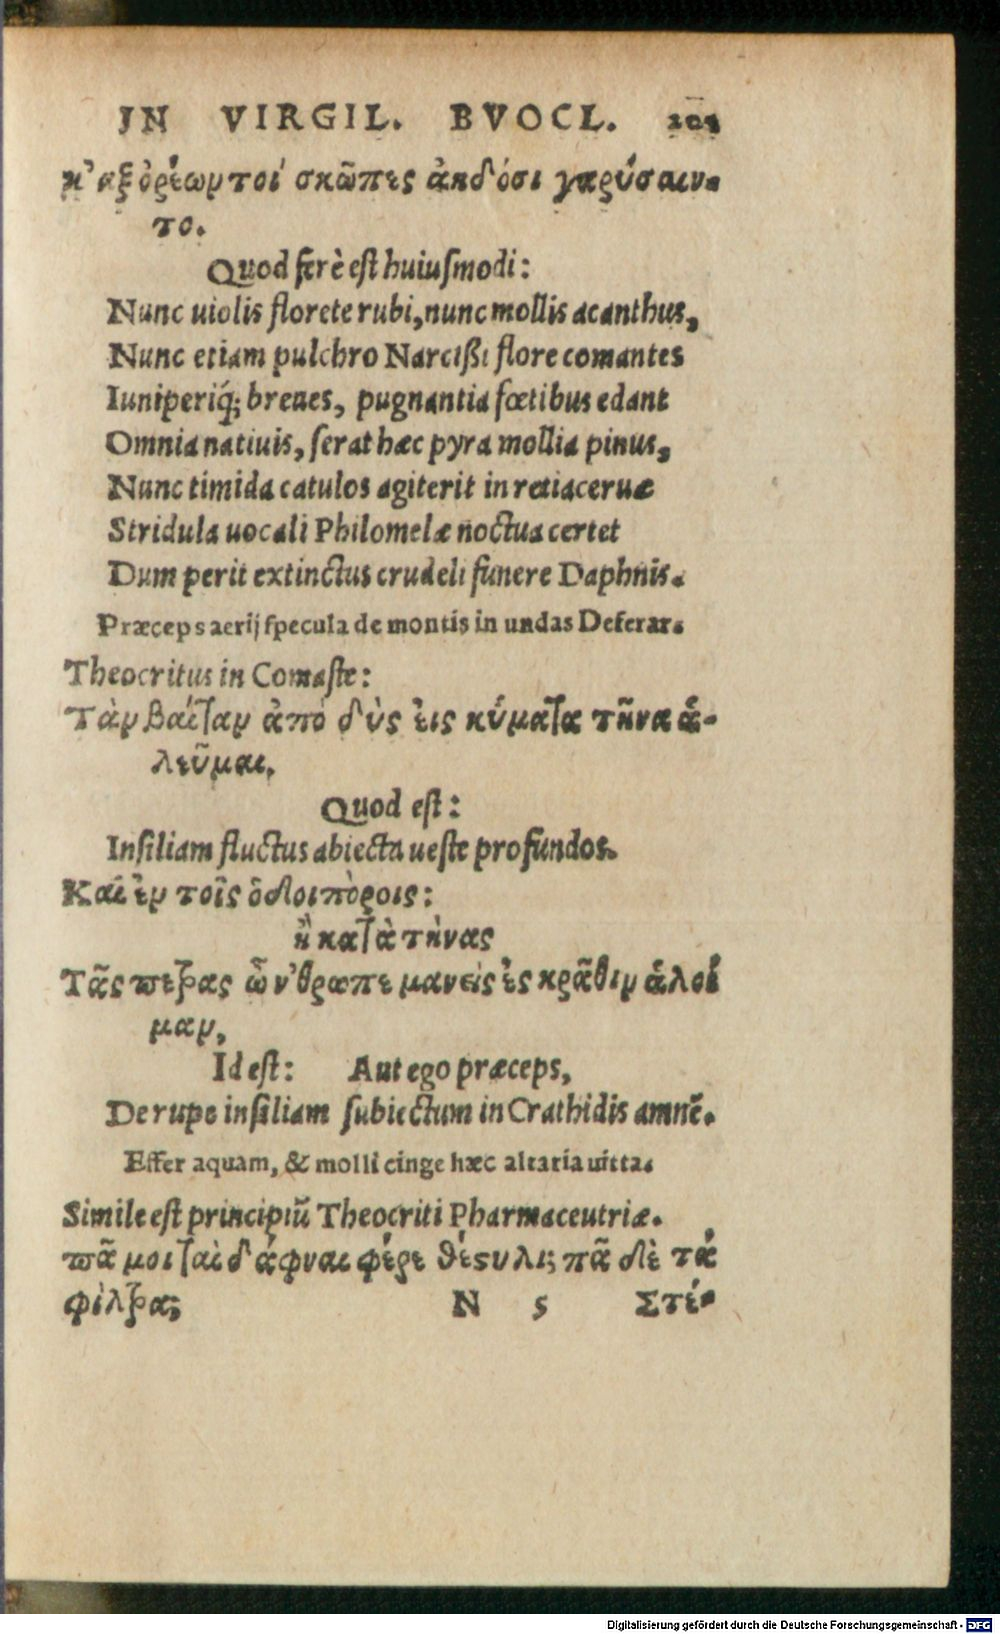 IN VIRGIL. BVOCL. 201
κ' ηξ ὀρέων τοὶ σκῶπες ἀηδόσι γαρύσαιν-
το.
Quod ferè est huiusmodi:
Nunc uiolis florete rubi, nunc mollis acanthus,
Nunc etiam pulchro Narcißi flore comantes
Iuniperiq́; breues, pugnantia fœtibus edant
Omnia natiuis, ferat hæc pyra mollia pinus,
Nunc timida catulos agiterit in retia ceruæ
Stridula uocali Philomelæ noctua certet
Dum perit extinctus crudeli funere Daphnis.
Præceps aerij specula de montis in undas Deferar.
Theocritus in Comaste:
Τὰν βαίταν ἀπὸ δὺς εἰς κύματα τῆνα ἁ-
λεῦμαι.
Quod est:
Insiliam fluctus abiecta ueste profundos.
Καὶ ἐν τοῖς ὁδοιπόροις:
ἢ κατὰ τήνας
Τᾶς πέτρας ὦ 'νθρωπε μανεὶς ἐς κρᾶθιν ἁλοί
μαν,
Id est: Aut ego præceps,
De rupe insiliam subiectum in Crathidis amnẽ.
Effer aquam, & molli cinge hæc altaria uitta.
Simile est principiũ Theocriti Pharmaceutriæ.
πᾶ μοι ταὶ δάφναι φέρε θέστυλι; πᾶ δὲ τά
φίλτρα;
N 5 Στέ-
Digitalisierung gefördert durch die Deutsche Forschungsgemeinschaft - DFG